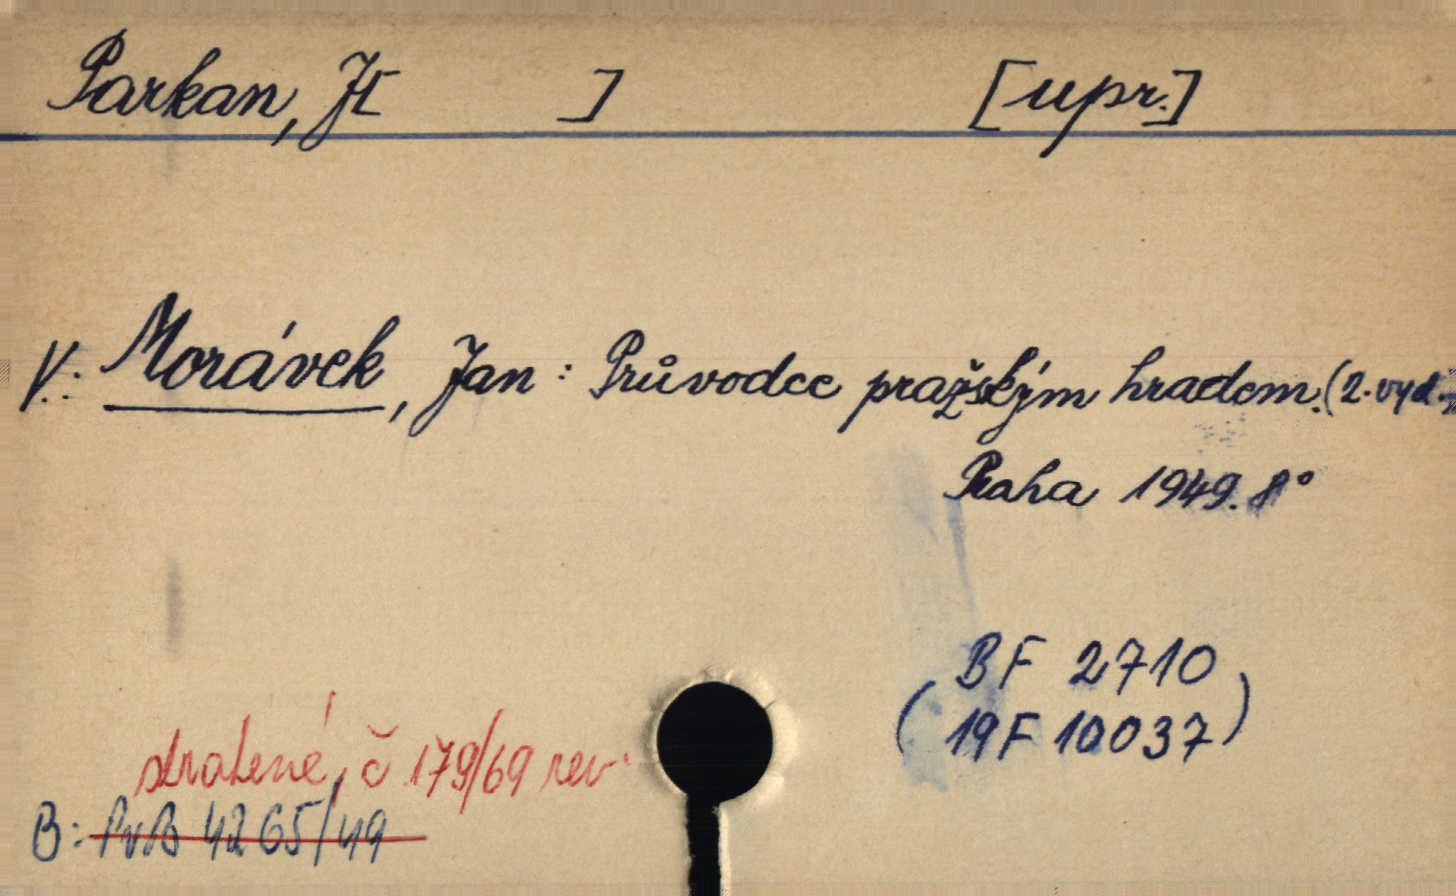 Parkan, J[ ] [upr.]
V: Morávek, Jan: Průvodce pražským hradem. (2. vyd.)
Praha 1949. 8°
BF 2710
(19F 10037)
stratené, č 179/69 rev.
B: PvB 4265/49